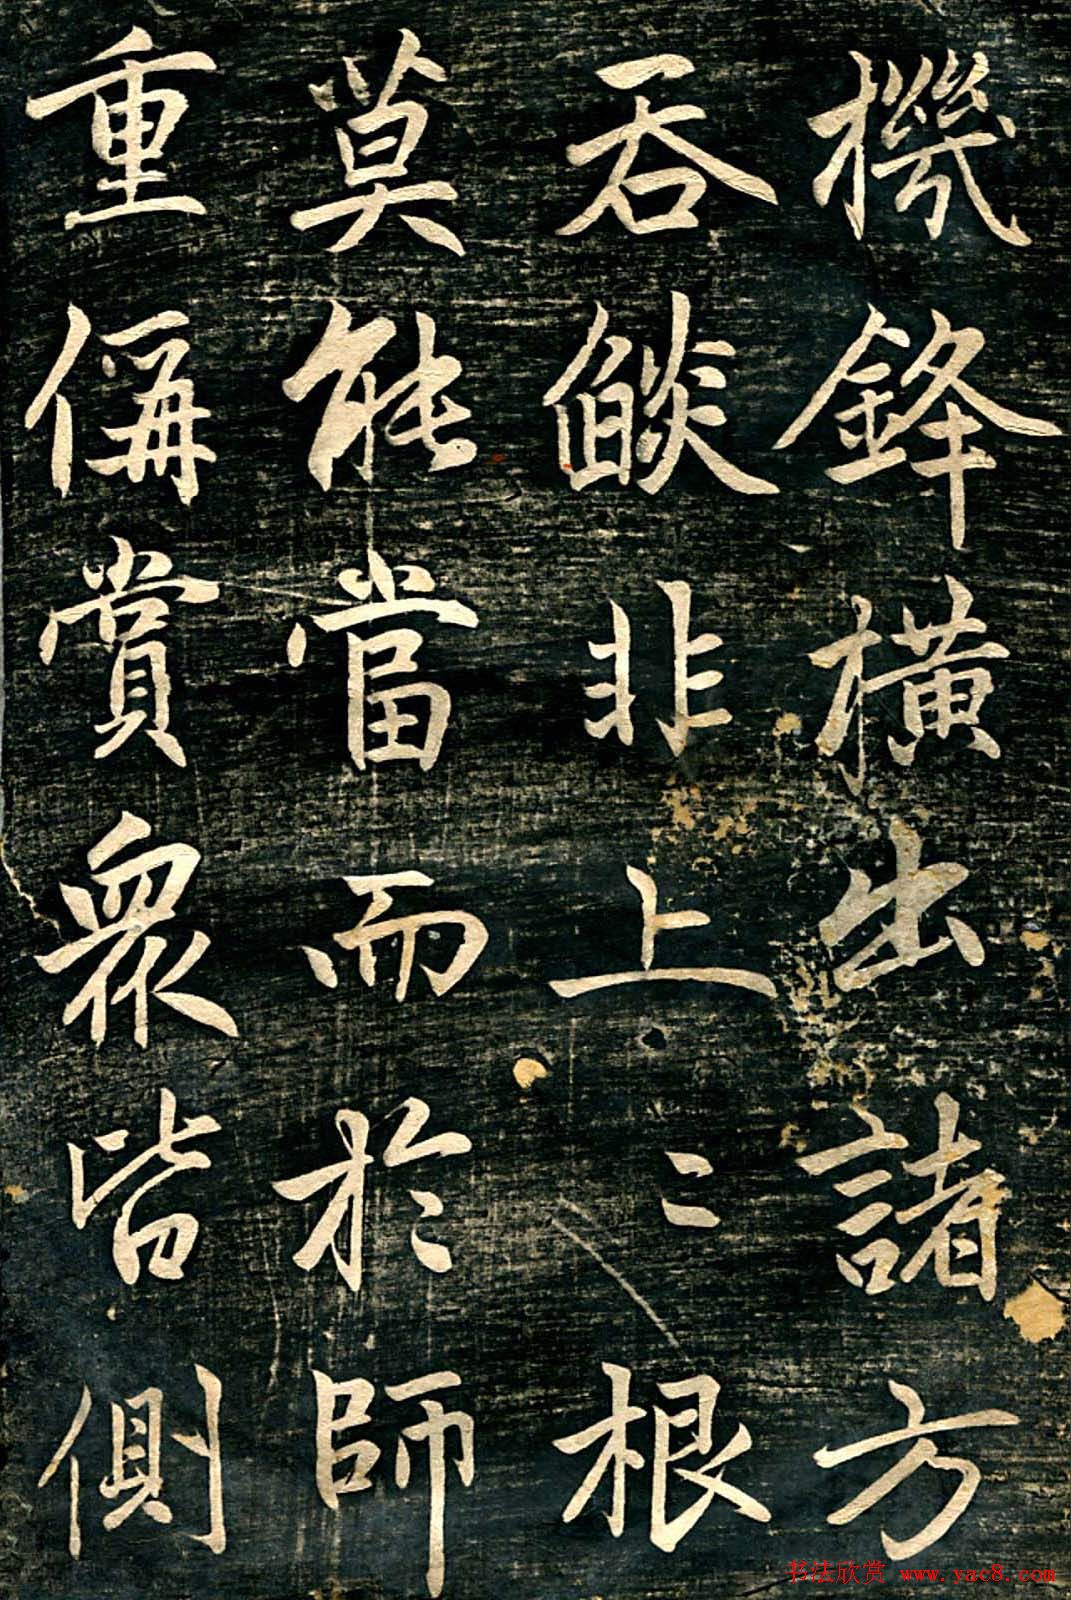 機鋒橫出諸方
吞餤非上〻根
莫能當而於師
重偁賞眾皆側
书法欣赏 www.yac8.com